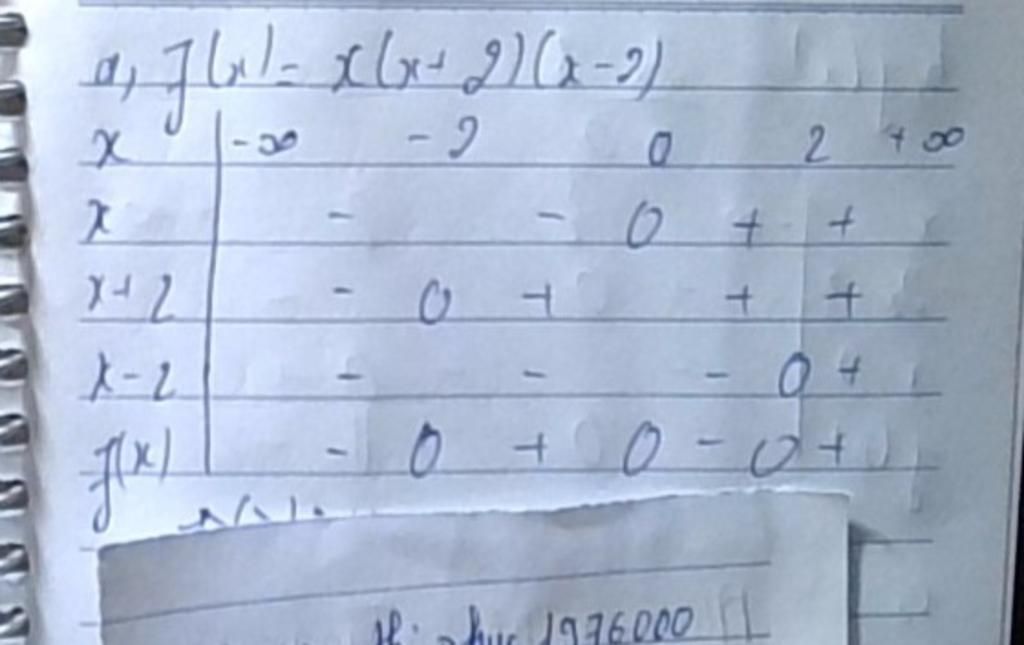 a, f(x) = x(x+2)(x-2)
x -∞ -2 0 2 +∞
x - - 0 + +
x+2 - 0 + + +
x-2 - - - 0 +
f(x) - 0 + 0 - 0 +
1976000